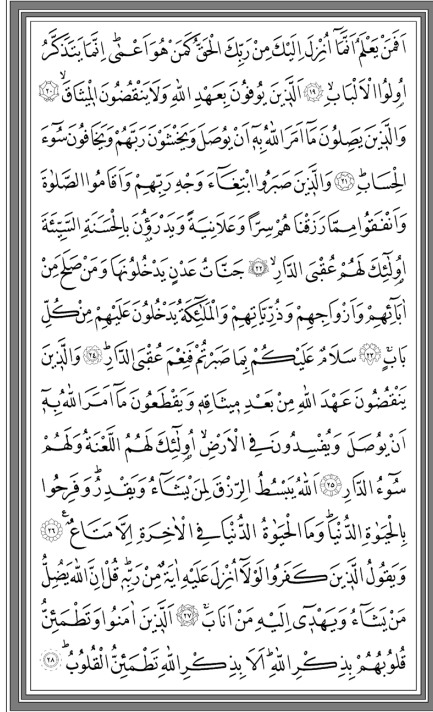 اَفَمَنْ يَعْلَمُ اَنَّمَٓا اُنْزِلَ اِلَيْكَ مِنْ رَبِّكَ الْحَقُّ كَمَنْ هُوَ اَعْمٰىۜ اِنَّمَا يَتَذَكَّرُ
اُو۬لُوا الْاَلْبَابِۙ ﴿١٩﴾ اَلَّذ۪ينَ يُوفُونَ بِعَهْدِ اللّٰهِ وَلَا يَنْقُضُونَ الْم۪يثَاقَۙ ﴿٢٠﴾
وَالَّذ۪ينَ يَصِلُونَ مَٓا اَمَرَ اللّٰهُ بِه۪ٓ اَنْ يُوصَلَ وَيَخْشَوْنَ رَبَّهُمْ وَيَخَافُونَ سُٓوءَ
الْحِسَابِۜ ﴿٢١﴾ وَالَّذ۪ينَ صَبَرُوا ابْتِغَٓاءَ وَجْهِ رَبِّهِمْ وَاَقَامُوا الصَّلٰوةَ
وَاَنْفَقُوا مِمَّا رَزَقْنَاهُمْ سِرًّا وَعَلَانِيَةً وَيَدْرَؤُ۫نَ بِالْحَسَنَةِ السَّيِّئَةَ
اُو۬لٰٓئِكَ لَهُمْ عُقْبَى الدَّارِۙ ﴿٢٢﴾ جَنَّاتُ عَدْنٍ يَدْخُلُونَهَا وَمَنْ صَلَحَ مِنْ
اٰبَٓائِهِمْ وَاَزْوَاجِهِمْ وَذُرِّيَّاتِهِمْ وَالْمَلٰٓئِكَةُ يَدْخُلُونَ عَلَيْهِمْ مِنْ كُلِّ
بَابٍۚ ﴿٢٣﴾ سَلَامٌ عَلَيْكُمْ بِمَا صَبَرْتُمْ فَنِعْمَ عُقْبَى الدَّارِۜ ﴿٢٤﴾ وَالَّذ۪ينَ
يَنْقُضُونَ عَهْدَ اللّٰهِ مِنْ بَعْدِ م۪يثَاقِه۪ وَيَقْطَعُونَ مَٓا اَمَرَ اللّٰهُ بِه۪ٓ
اَنْ يُوصَلَ وَيُفْسِدُونَ فِي الْاَرْضِۙ اُو۬لٰٓئِكَ لَهُمُ اللَّعْنَةُ وَلَهُمْ
سُٓوءُ الدَّارِ ﴿٢٥﴾ اَللّٰهُ يَبْسُطُ الرِّزْقَ لِمَنْ يَشَٓاءُ وَيَقْدِرُۜ وَفَرِحُوا
بِالْحَيٰوةِ الدُّنْيَاۜ وَمَا الْحَيٰوةُ الدُّنْيَا فِي الْاٰخِرَةِ اِلَّا مَتَاعٌ۟ ﴿٢٦﴾
وَيَقُولُ الَّذ۪ينَ كَفَرُوا لَوْلَٓا اُنْزِلَ عَلَيْهِ اٰيَةٌ مِنْ رَبِّه۪ۜ قُلْ اِنَّ اللّٰهَ يُضِلُّ
مَنْ يَشَٓاءُ وَيَهْد۪ٓي اِلَيْهِ مَنْ اَنَابَۚ ﴿٢٧﴾ اَلَّذ۪ينَ اٰمَنُوا وَتَطْمَئِنُّ
قُلُوبُهُمْ بِذِكْرِ اللّٰهِۜ اَلَا بِذِكْرِ اللّٰهِ تَطْمَئِنُّ الْقُلُوبُۜ ﴿٢٨﴾